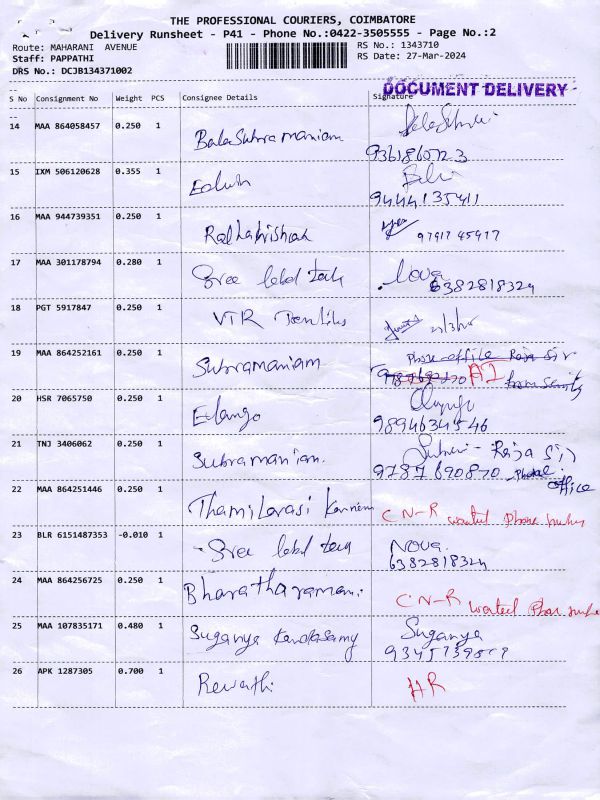 THE PROFESSIONAL COURIERS, COIMBATORE
Delivery Runsheet - P41 - Phone No.:0422-3505555 - Page No.:2
Route: MAHARANI AVENUE RS No.: 1343710
Staff: PAPPATHI RS Date: 27-Mar-2024
DRS No.: DCJB134371002
DOCUMENT DELIVERY
S No Consignment No Weight PCS Consignee Details Signature
14 MAA 864058457 0.250 1 BalaSubramaniam
15 IXM 506120628 0.355 1 Edwin
9444135411
16 MAA 944739351 0.250 1 Radhakrishnan
97917 45977
17 MAA 301178794 0.280 1 Sree label tech Nova
6382818324
18 PGT 5917847 0.250 1 VTR Textiles
19 MAA 864252161 0.250 1 Subramaniam Phone office Raja Sir
20 HSR 7065750 0.250 1 Elango
9894634546
21 TNJ 3406062 0.250 1 Subramaniam. Raja Sir
9787690870 - Phone
office
22 MAA 864251446 0.250 1 Thamilarasi CN-R wanted Phone number
23 BLR 6151487353 -0.010 1 Sree label tech Nova
6382818324
24 MAA 864256725 0.250 1 Bharatharamani CN-R wanted Phone number
25 MAA 107835171 0.480 1 Suganya Kandasamy Suganya
26 APK 1287305 0.700 1 Revathi AR